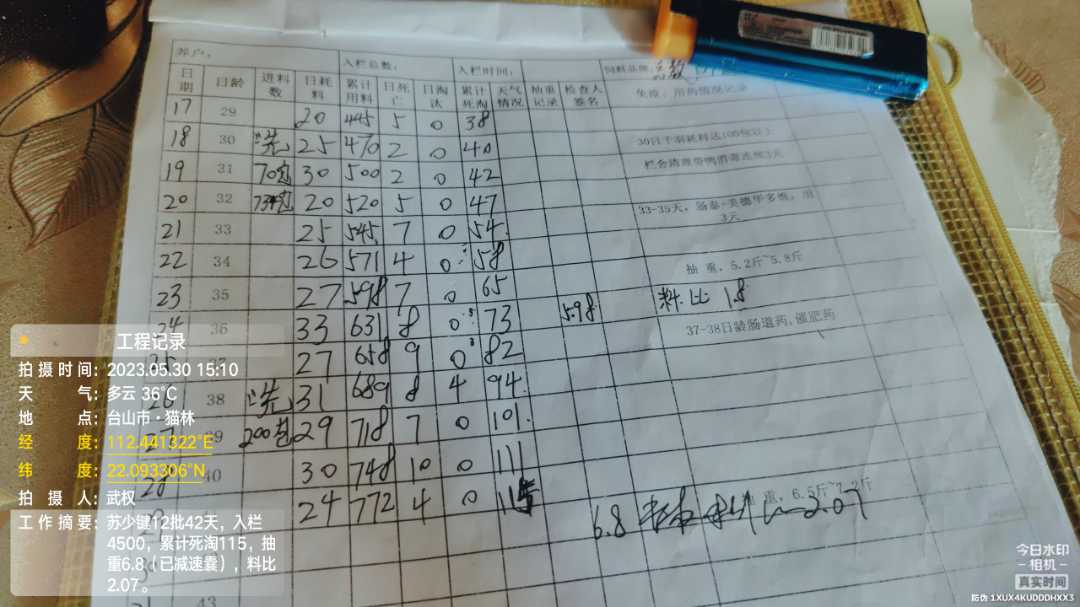 养户:
入栏总数:
入栏时间:
饲料品牌:
日期 日龄 进料数 日耗料 累计用料 日死亡 日淘汰 累计死淘 天气情况 抽重记录 检查人签名 免疫、用药情况记录
17 29 20 445 5 0 38
18 30 25 470 2 0 40
19 31 70包 30 500 2 0 42
20 32 734包 20 520 5 0 47
33-35天,
3天
21 33 25 545 7 0 54
22 34 26 571 4 0 58 抽重,5.2斤~5.8斤
23 35 27 598 7 0 65 料比 1.8
24 36 33 631 8 0 73 5.98 37-38日龄肠道药,催肥药
25 27 658 9 0 82
38 31 689 8 4 94
27 39 200包 29 718 7 0 101
28 40 30 748 10 0 111
24 772 4 0 115 重,6.5斤~7.2斤
6.8 2.07
43
工程记录
拍摄时间:2023.05.30 15:10
天气:多云 36℃
地点:台山市·猫林
经度:112.441322°E
纬度:22.093306°N
拍摄人:武权
工作摘要:苏少健12批42天,入栏
4500,累计死淘115,抽
重6.8(已减速囊),料比
2.07。
今日水印
相机
真实时间
防伪 1XUX4KUDDDHXX3